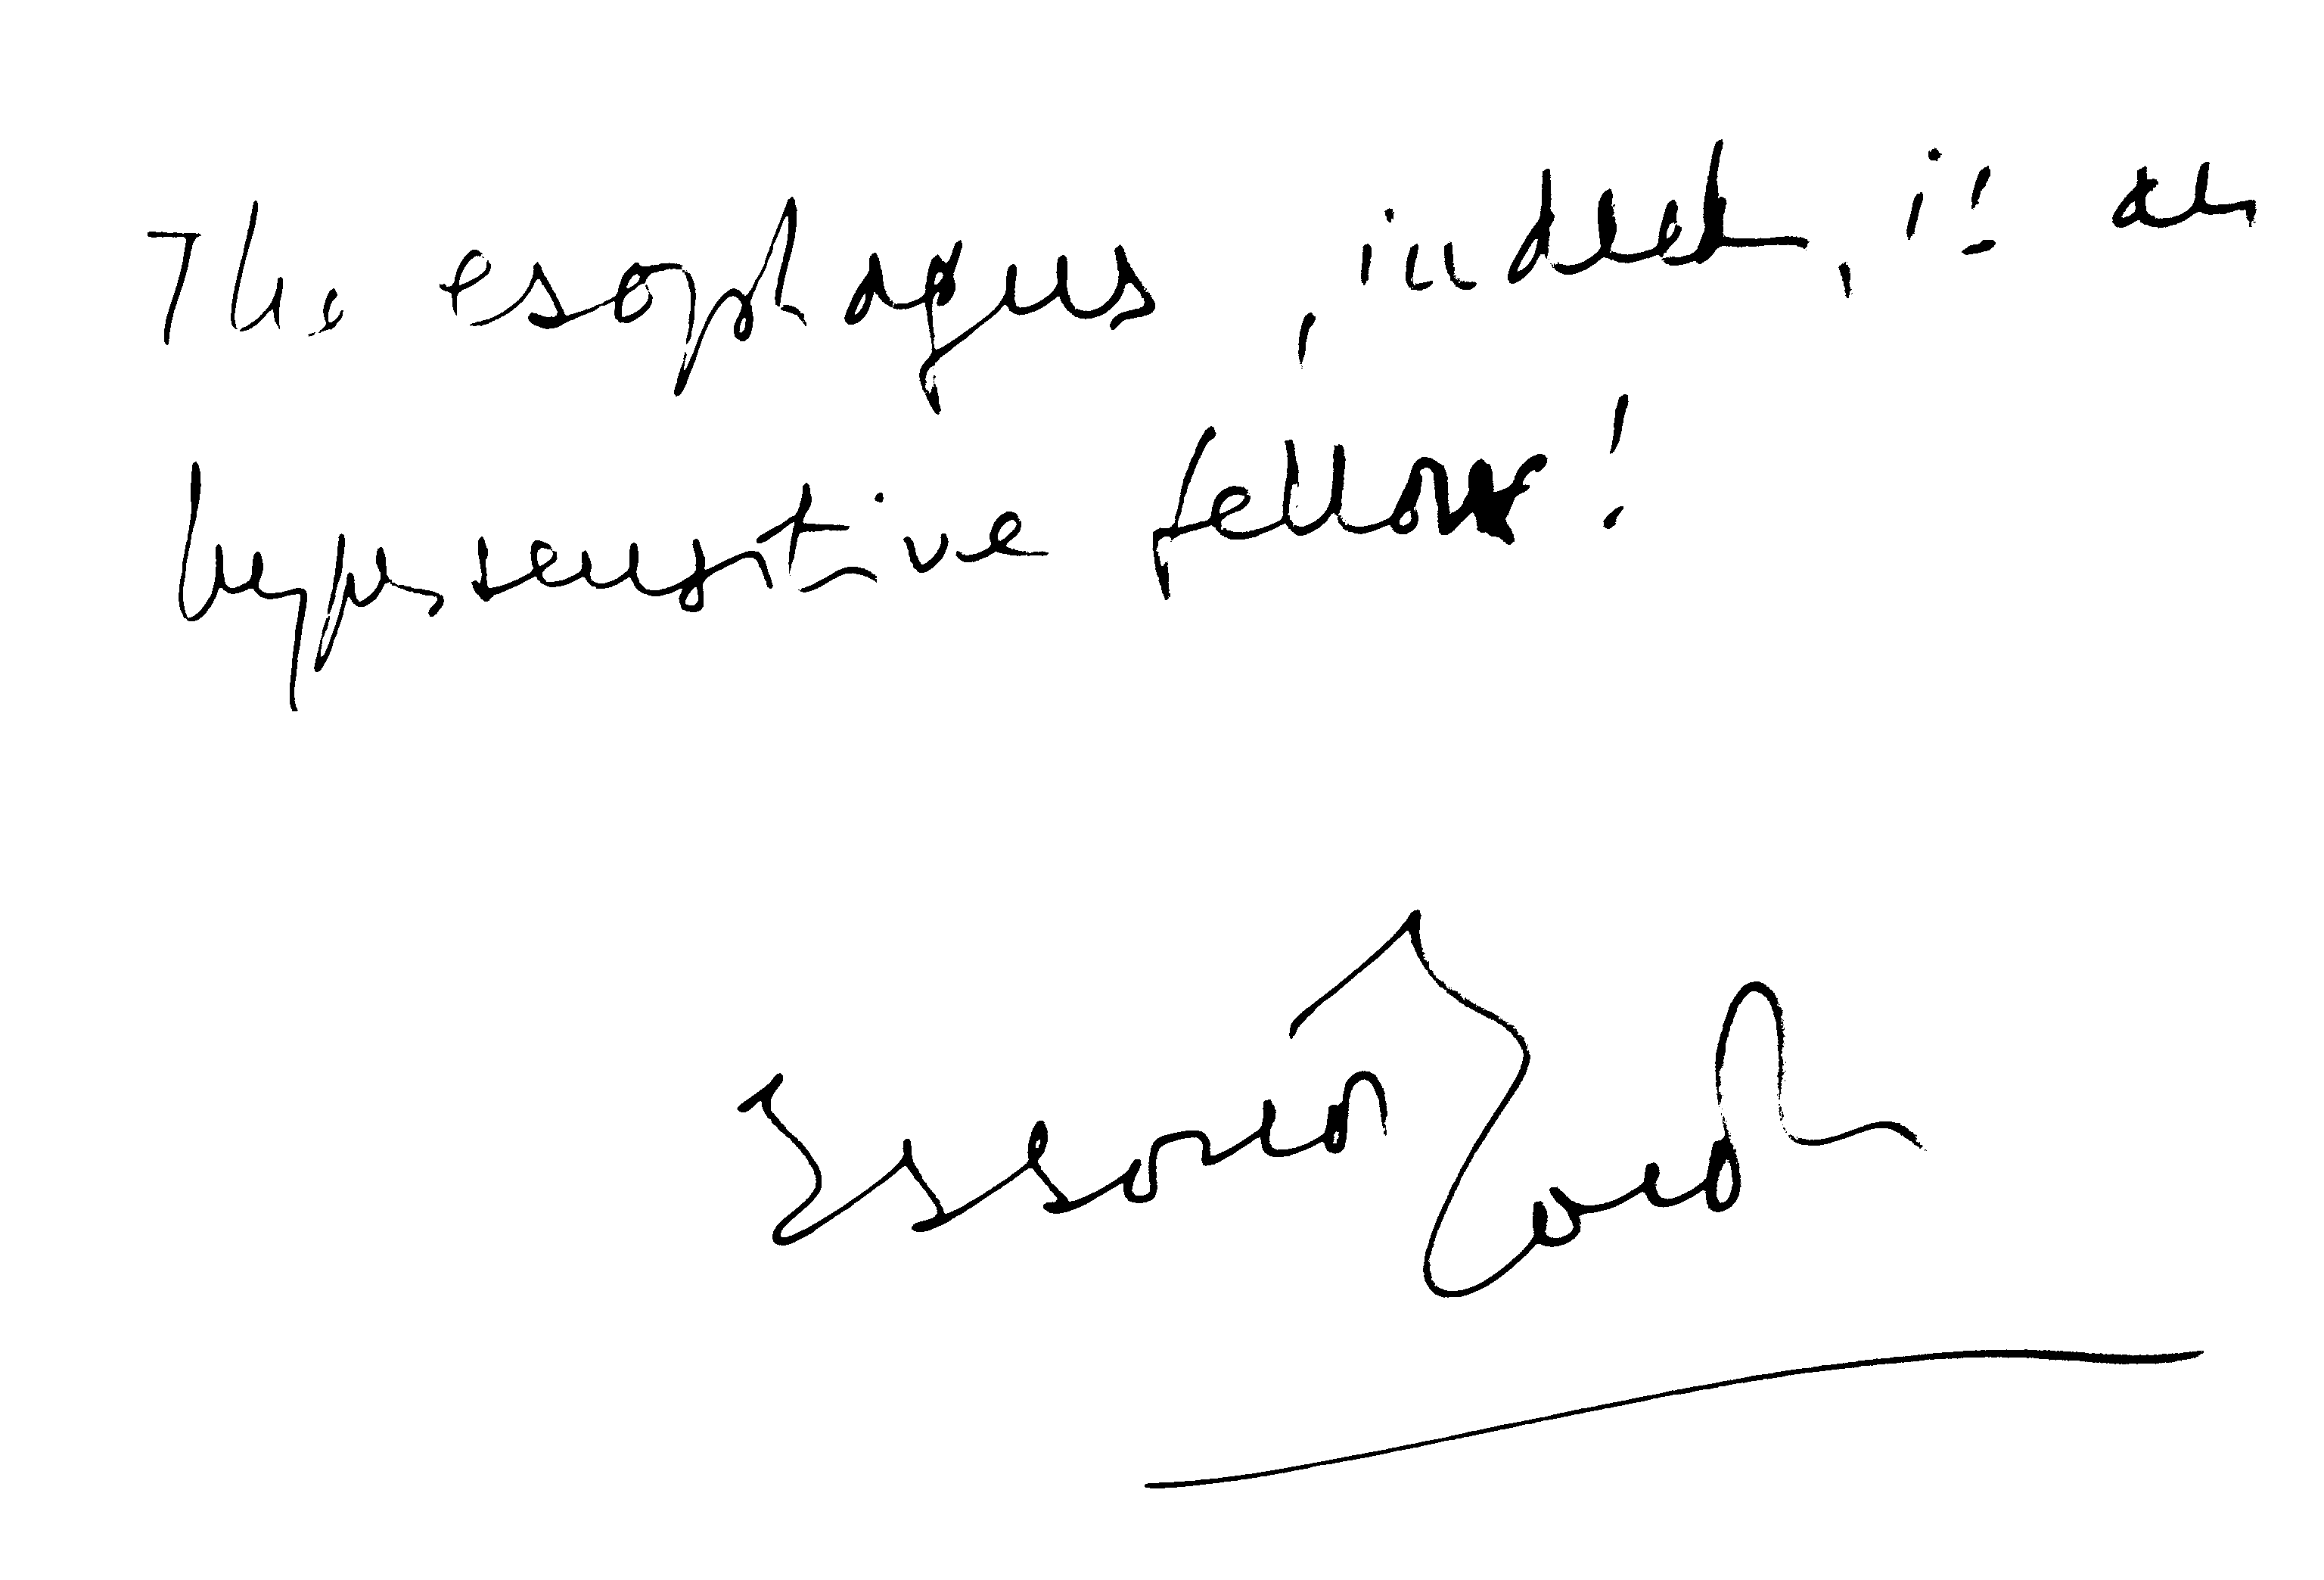 The esophagus, indeed, is an
hypersensitive fellow!